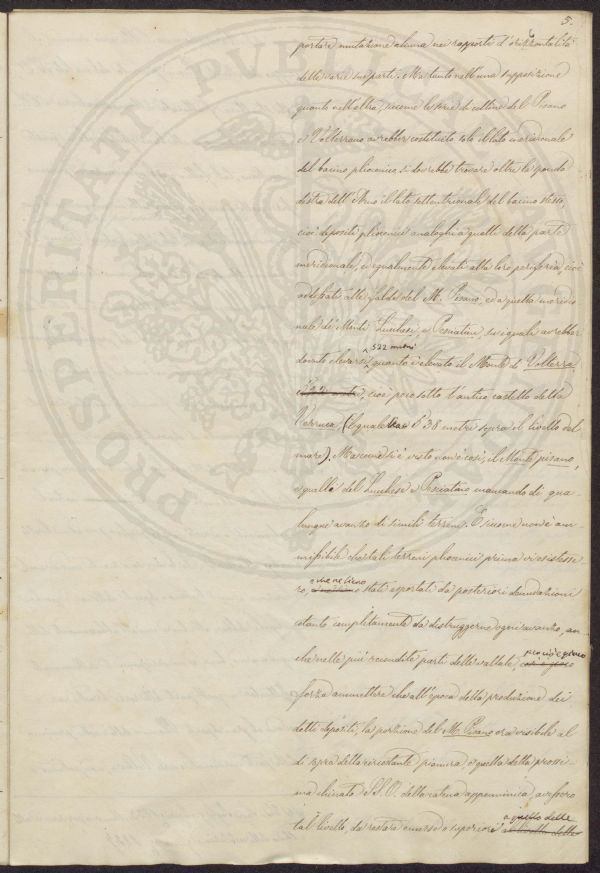 5.
portare mutazione alcuna nei rapporti d'orizzontalità
delle varie sue parti. Ma tanto nell'una supposizione
quanto nell'altra, siccome le serie di colline del Pisano
e Volterrano avrebber costituito solo il lato meridionale
del bacino pliocenico, si dovrebbe trovare oltre la sponda
destra dell'Arno il lato settentrionale del bacino stesso,
cioè depositi pliocenici analoghi a quelli della parte
meridionale, ed egualmente elevati alla loro periferia, cioè
addossati alle falde del M. Pisano, ed a quella meridio
nale de' Monti Lucchesi, e Pesciatini, sui quali avrebber
dovuto elevarsi, 522 metri quanto è elevato il Monte di Volterra
cioè poco sotto l'antico castello della
Verruca, (il quale è a 538 metri sopra il livello del
mare). Ma come si è visto non è così; il Monte pisano,
e quelli del Lucchese e Pesciatino mancando di qua
lunque avanzo di simili terreni. E siccome non è am-
missibile che tali terreni pliocenici prima vi esistesse
ro, e che ne sieno stati esportati da posteriori denudazioni
tanto completamente da distruggerne ogni avanzo, an-
che nelle più recondite parti delle vallate, perciò è giuoco
forza ammettere che all'epoca della produzione dei
detti depositi, la porzione del M. Pisano ora visibile al
di sopra della circostante pianura e quella della prossi-
ma chinata S.S.O. della catena appenninica, avessero
tal livello, da restare emerse e superiori a quello delle